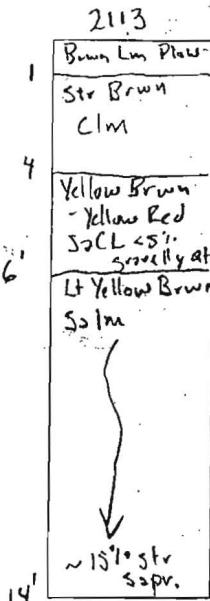 2113
Brwn Lm Plow-
1
Str Brwn
Clm
4
Yellow Brwn
- Yellow Red
SaCL <5%
gravelly at
6'
Lt Yellow Brwn
Salm
~15% str
sapr.
14'